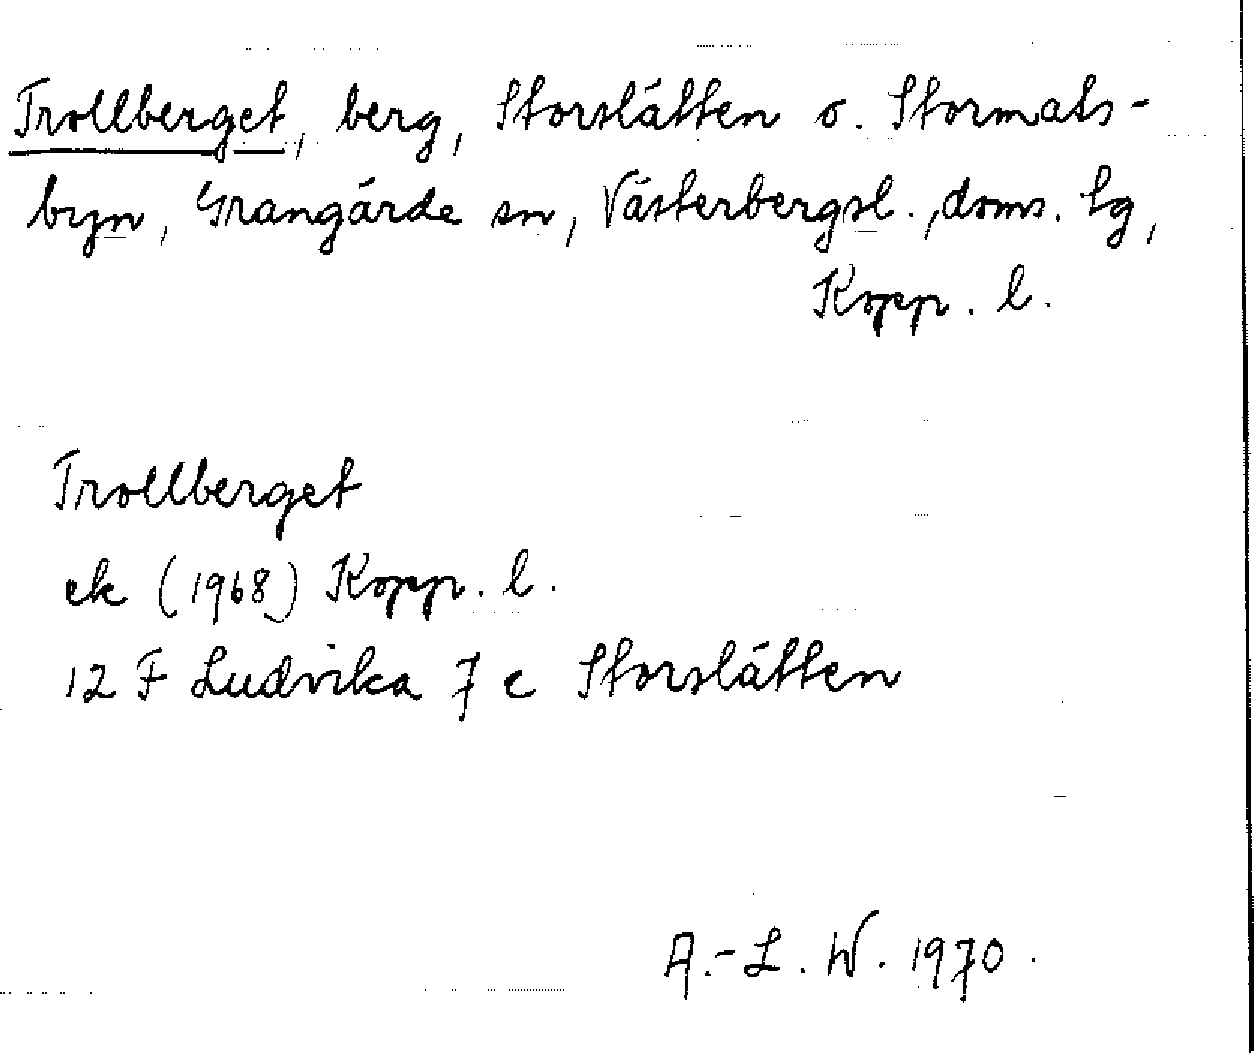 Trollberget, berg, Storslätten o. Stormats-
byn, Grangärde sn, Västerbergsl. doms. tg,
Kopp. l.
Trollberget
ek (1968) Kopp. l.
12 F Ludvika 7 c Storslätten
A.-L. W. 1970.